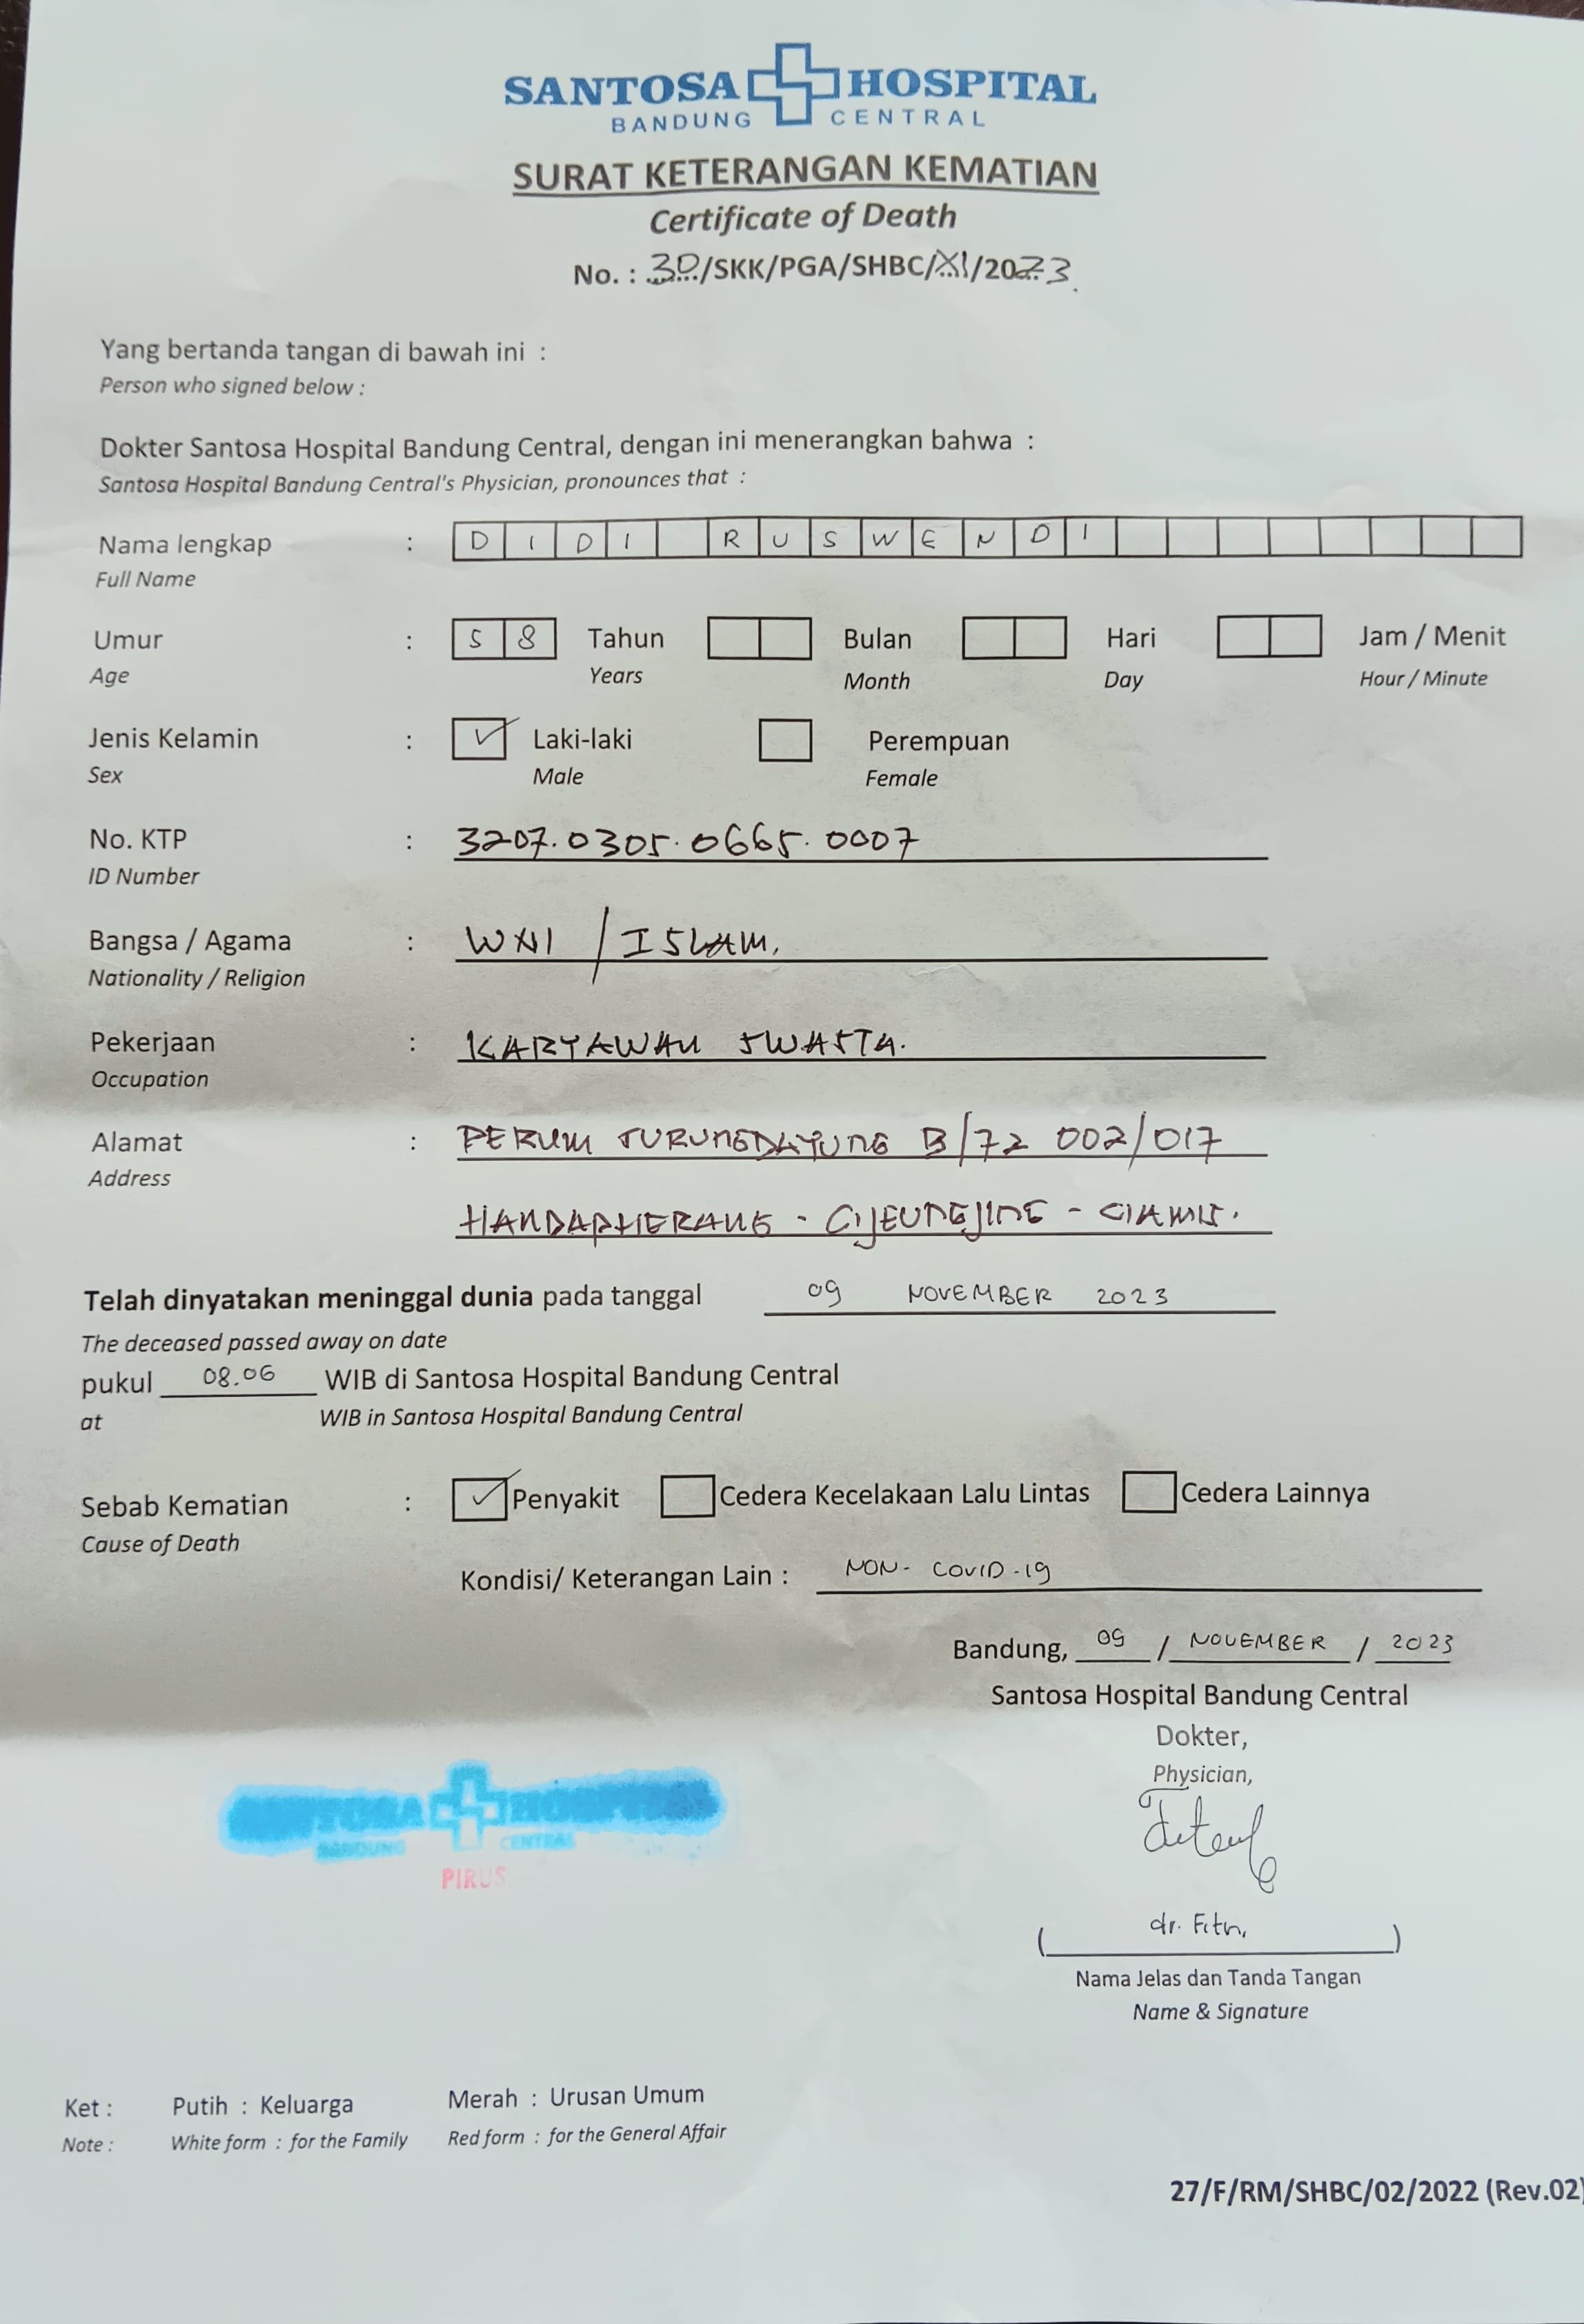 SANTOSA HOSPITAL
BANDUNG CENTRAL
SURAT KETERANGAN KEMATIAN
Certificate of Death
No. : 30/SKK/PGA/SHBC/XI/2023.
Yang bertanda tangan di bawah ini :
Person who signed below :
Dokter Santosa Hospital Bandung Central, dengan ini menerangkan bahwa :
Santosa Hospital Bandung Central's Physician, pronounces that :
Nama lengkap : DIDI RUSWENDI
Full Name
Umur : 58 Tahun Bulan Hari Jam / Menit
Age Years Month Day Hour / Minute
Jenis Kelamin : Laki-laki Perempuan
Sex Male Female
No. KTP : 3207.0305.0665.0007
ID Number
Bangsa / Agama : WNI / ISLAM.
Nationality / Religion
Pekerjaan : KARYAWAN SWASTA.
Occupation
Alamat : PERUM B/72 002/017
Address
HANDAPHERANG - CIJEUNGJING - CIAMIS.
Telah dinyatakan meninggal dunia pada tanggal 09 NOVEMBER 2023
The deceased passed away on date
pukul 08.06 WIB di Santosa Hospital Bandung Central
at WIB in Santosa Hospital Bandung Central
Sebab Kematian : Penyakit Cedera Kecelakaan Lalu Lintas Cedera Lainnya
Cause of Death
Kondisi/ Keterangan Lain : NON- COVID-19
Bandung, 09 / NOVEMBER / 2023
Santosa Hospital Bandung Central
Dokter,
Physician,
SANTOSA HOSPITAL
BANDUNG CENTRAL
PIRUS
( dr. )
Nama Jelas dan Tanda Tangan
Name & Signature
Ket : Putih : Keluarga Merah : Urusan Umum
Note : White form : for the Family Red form : for the General Affair
27/F/RM/SHBC/02/2022 (Rev.02)